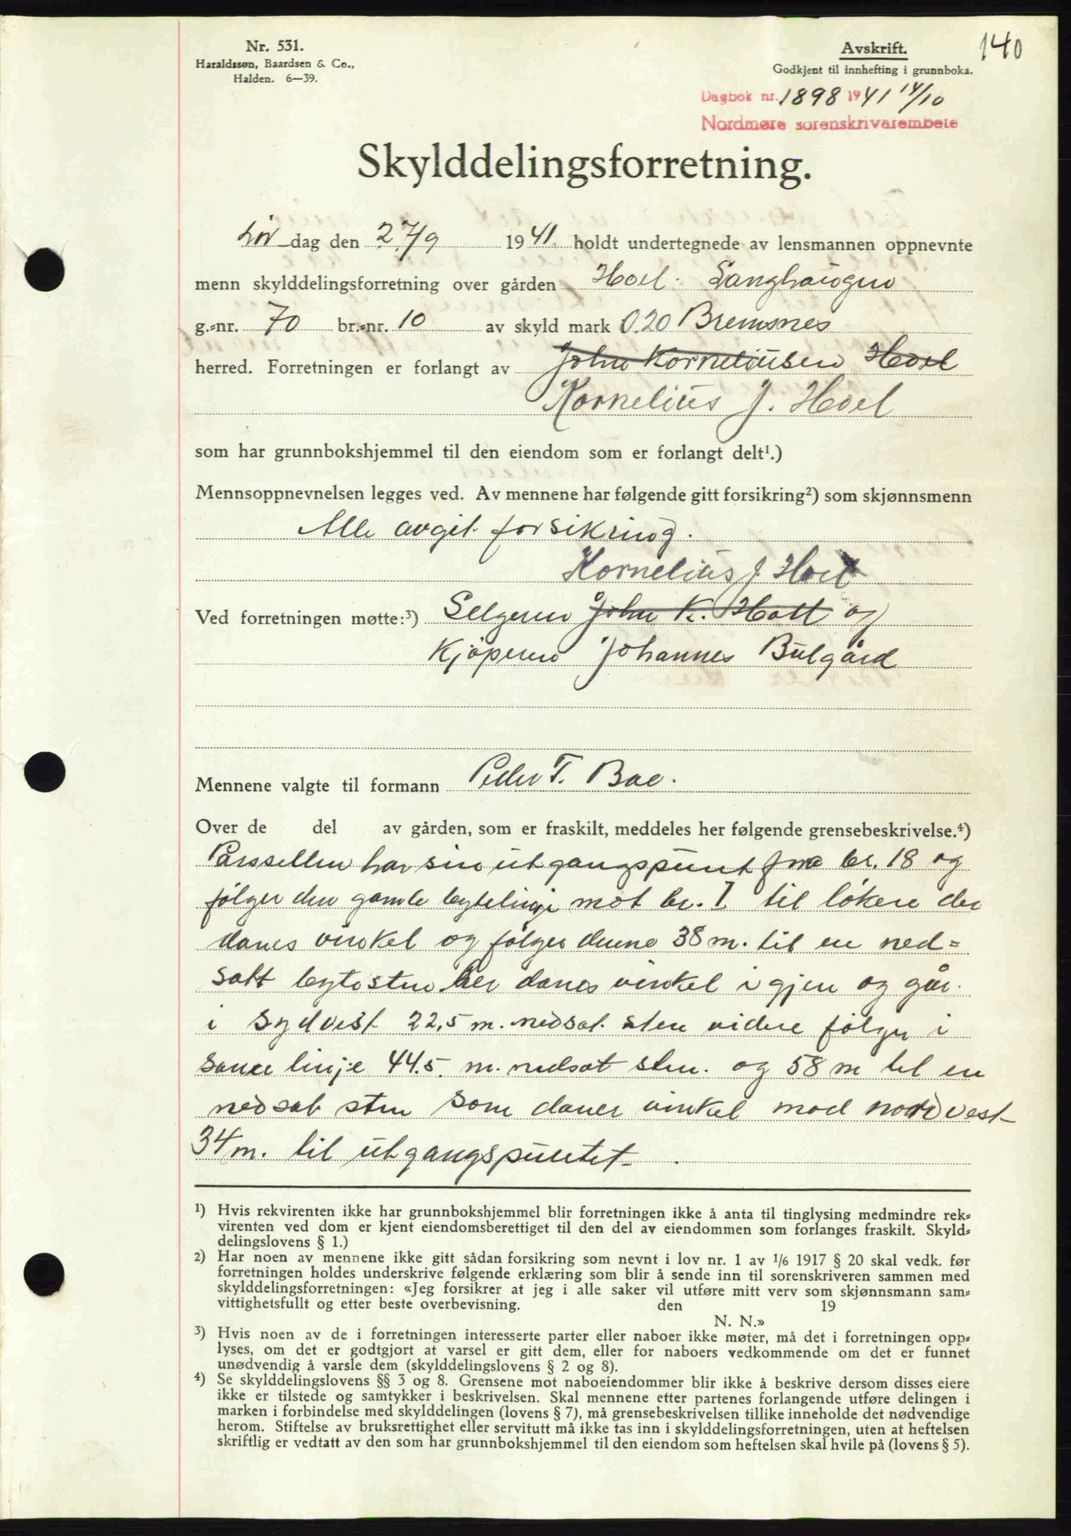 Nr. 531.
Haraldssøn, Baardsen & Co.,
Halden. 6—39.
Avskrift.
Godkjent til innhefting i grunnboka.
140
Dagbok nr. 1898 1941 14/10
Nordmøre sorenskrivarembete
Skylddelingsforretning.
Lør dag den 27/9 1941 holdt undertegnede av lensmannen oppnevnte
menn skylddelingsforretning over gården Hoel. Langhaugen
g.-nr. 70 br.-nr. 10 av skyld mark 0.20 Bremsnes
herred. Forretningen er forlangt av John Korneliusen Hoel
Kornelius J. Hoel
som har grunnbokshjemmel til den eiendom som er forlangt delt¹.)
Mennsoppnevnelsen legges ved. Av mennene har følgende gitt forsikring²) som skjønnsmenn
Alle avgit forsikring.
Kornelius J Hoel
Ved forretningen møtte:³) Selgeren John K. Hoel og
Kjøperen Johannes Bulgård
Mennene valgte til formann Peder T. Boe.
Over de del av gården, som er fraskilt, meddeles her følgende grensebeskrivelse.⁴)
Parssellen har sin utgangspunt fra br. 18 og
følger den gamle bytelinje mot br. 1 til løkere der
danes vinkel og følger denne 38 m. til en ned=
satt bytesten her danes vinkel i gjen og går
i sydvest 22,5 m. nedsat sten videre følger i
same linje 44.5 m. nedsat sten. og 58 m til en
nedsat sten som daner vinkel mod nordvest
34 m. til utgangspuntet.
¹) Hvis rekvirenten ikke har grunnbokshjemmel blir forretningen ikke å anta til tinglysing medmindre rek-
virenten ved dom er kjent eiendomsberettiget til den del av eiendommen som forlanges fraskilt. Skyld-
delingslovens § 1.)
²) Har noen av mennene ikke gitt sådan forsikring som nevnt i lov nr. 1 av 1/6 1917 § 20 skal vedk. før
forretningen holdes underskrive følgende erklæring som blir å sende inn til sorenskriveren sammen med
skylddelingsforretningen: «Jeg forsikrer at jeg i alle saker vil utføre mitt verv som skjønnsmann sam-
vittighetsfullt og etter beste overbevisning. den 19
N. N.»
³) Hvis noen av de i forretningen interesserte parter eller naboer ikke møter, må det i forretningen opp-
lyses, om det er godtgjort at varsel er gitt dem, eller for naboers vedkommende om det er funnet
unødvendig å varsle dem (skylddelingslovens § 2 og 8).
⁴) Se skylddelingslovens §§ 3 og 8. Grensene mot naboeiendommer blir ikke å beskrive dersom disses eiere
ikke er tilstede og samtykker i beskrivelsen. Skal mennene etter partenes forlangende utføre delingen i
marken i forbindelse med skylddelingen (lovens § 7), må grensebeskrivelsen tillike inneholde det nødvendige
herom. Stiftelse av bruksrettighet eller servitutt må ikke tas inn i skylddelingsforretningen, uten at heftelsen
skriftlig er vedtatt av den som har grunnbokshjemmel til den eiendom som heftelsen skal hvile på (lovens § 5).